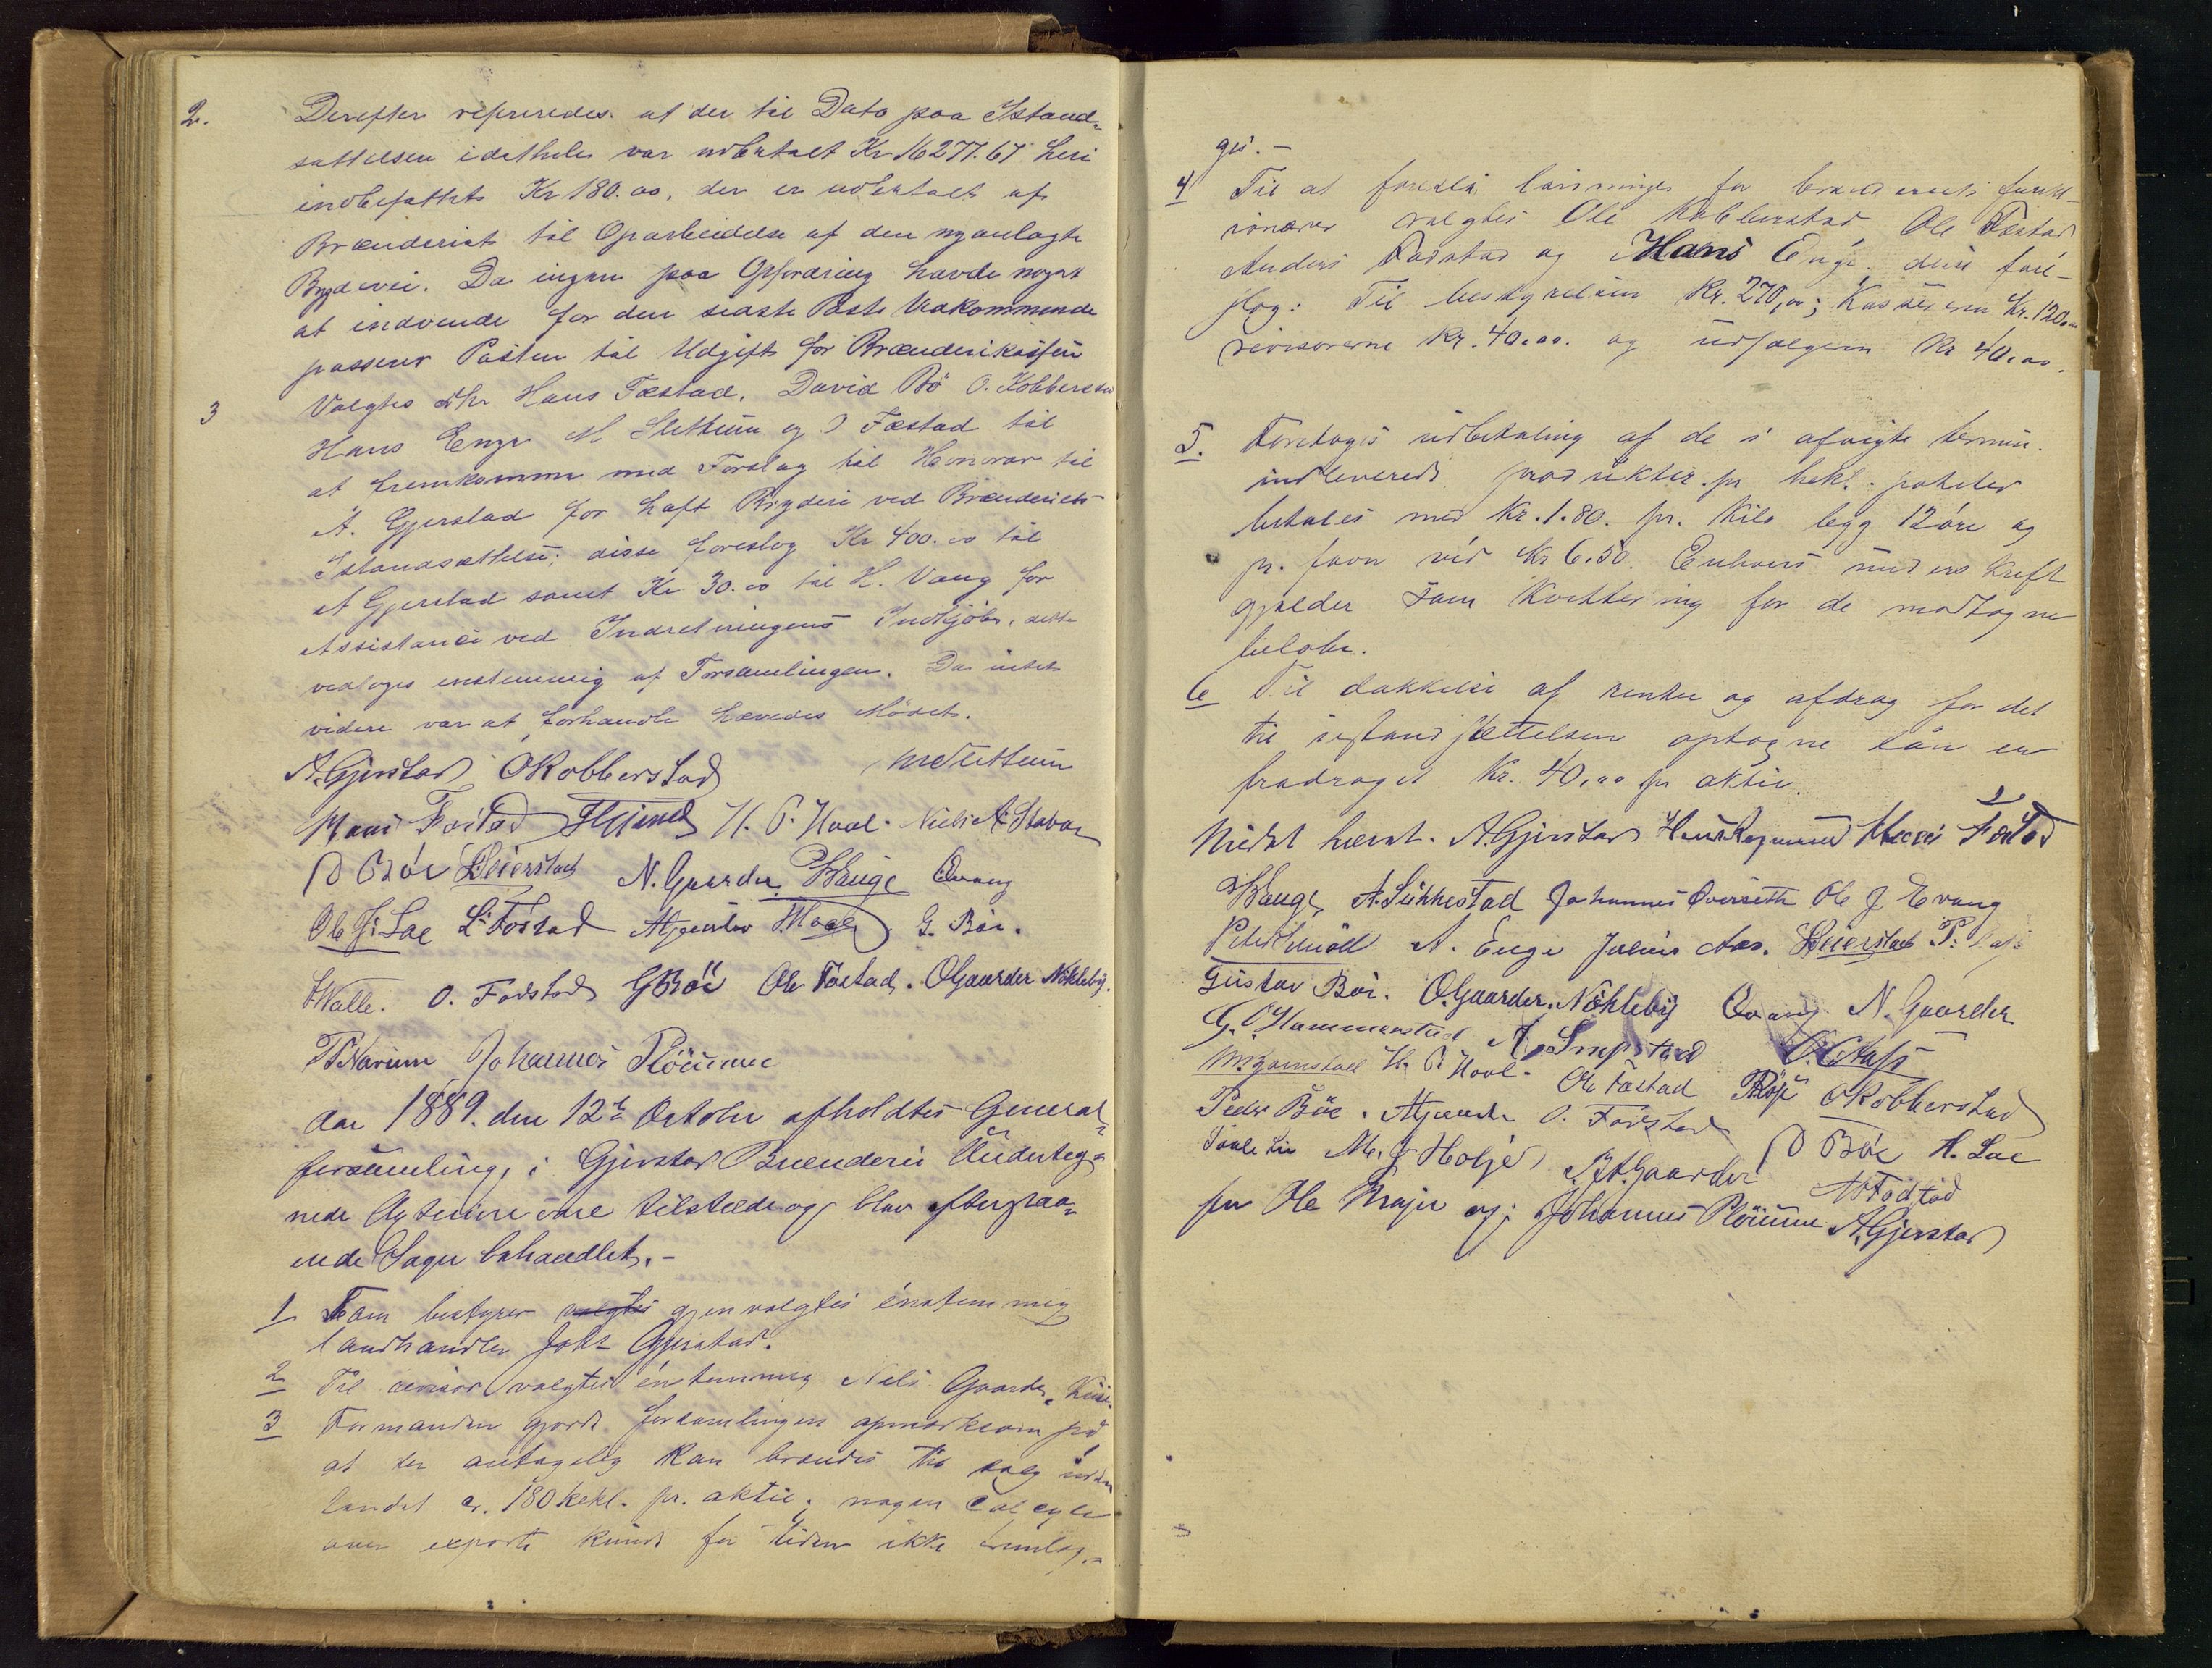 2. Derefter refereredes at der til Dato paa Istand-
sættelsen idethele var udbetalt Kr 16277.67 heri
indbefattet Kr 180.00, der er udbetalt af
Brænderiet til Oparbeidelse af den nyanlagte
Bygdevei. Da ingen paa Opfordring havde noget
at indvende for den sidste Post Vedkommende
passerer Posten til Udgift for Brænderikassen
3 Valgtes Hr Hans Fæstad, David Bö O. Kobberstad
Hans Enge M Slettum og O Fæstad til
at fremkomme med Forslag til Honorar til
A. Gjerstad for haft Bryderi ved Brænderiets
Istandsættelse; disse foreslog Kr 400.00 til
A Gjerstad samt Kr 30.00 til H. Vang for
Assistance ved Indretningens Indkjöb, dette
vedtoges enstemmig af Forsamlingen. Da intet
videre var at forhandle hævedes Mödet.
A. Gjerstad OKobberstad M Slettum
Hans Fæstad H. P. Hoel. Niels A. Stavar
D Böe Beierstad N. Gaarder. Hauge Evang
Ole J. Lae L. Fostad Hoel G. Böe.
HValle. O. Fodstad GBöe Ole Fæstad. OGaarder Nökleby.
Narum Johannes Plöiume
Aar 1889. den 12te October afholdtes General-
forsamling, i Gjerstad Brænderi Underteg-
nede Actieiere vare tilstede og blev efterstaa-
ende Sager behandlet.-
1 Som bestyrer valgtes gjenvalgtes énstemmig
landhandler Johs Gjerstad.
2 Til revisor valgtes énstemmig Nils Gaarder
3 Formanden gjorde forsamlingen opmærksom på
at der antagelig kan brændes til salg inden
landet ca. 180 hekl. pr. aktie; nogen Calcyle
over export kunde for tiden ikke fremlæg-
ges.-
4 Til at foreslå lönninger for brænderiets funkt-
ionærer valgtes Ole Kobberstad, Ole Fæstad
Anders Fodstad og Hans Enge. disse fore-
slog: Til bestyrelsen Kr. 270,00; Kassereren Kr. 120.00
revisorerne Kr. 40.00. og udsælgeren Kr 40.00.
5. Foretoges udbetaling af de i afvigte termin
indleverede produkter. pr hekl. poteter
betales med Kr. 1.80. pr. Kilo bygg 12 öre og
pr. favn ved Kr 6.50. Enhvers underskrift
gjælder som Kvittering for de modtagne
belöbe.
6 Til dækkelse af renter og afdrag for det
til istandsættelsen optagne lån er
fradraget Kr. 40,00 pr aktie.
Mödet hævet. A. Gjerstad Hans Fæstad
Hauge A. Sukkestad Johannes Överseth Ole J Evang
A. Enge Julius Aas. Beierstad
Gustav Böe. O. Gaarder. Nökleby Evang N. Gaarder
G. O. Hammerstad
H. P. Hoel. Ole Fæstad OKobberstad
Peder Böe. O. Fodstad
M. J Holje A. Gaarder D Böe A. Lae
for Ole og; Johannes Plöiume Fodstad A. Gjerstad